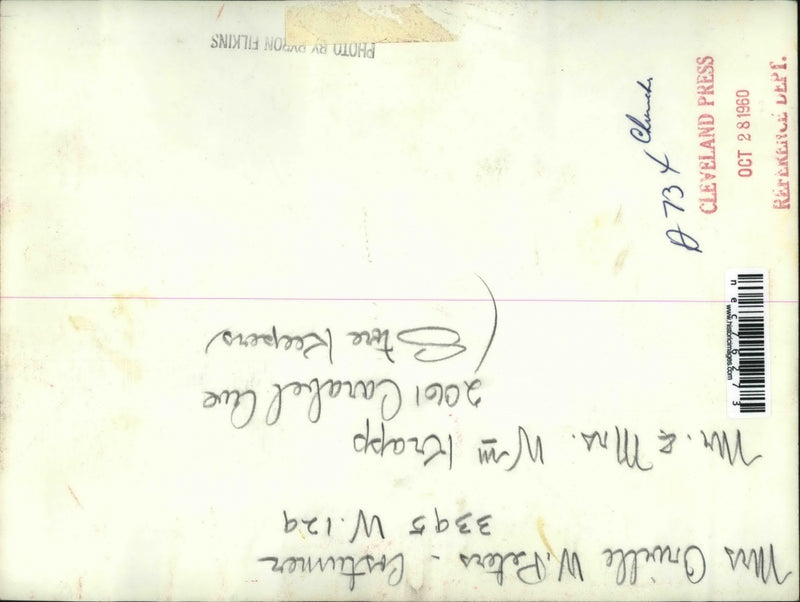 Mrs Orville W. Peters - Costumer
3395 W. 129
Mr. & Mrs. Wm Krapp
2061 Carabel Ave
(Store Keepers)
PHOTO BY BYRON FILKINS
D 734 Church
CLEVELAND PRESS
OCT 28 1960
REFERENCE DEPT.
www.historicimages.com